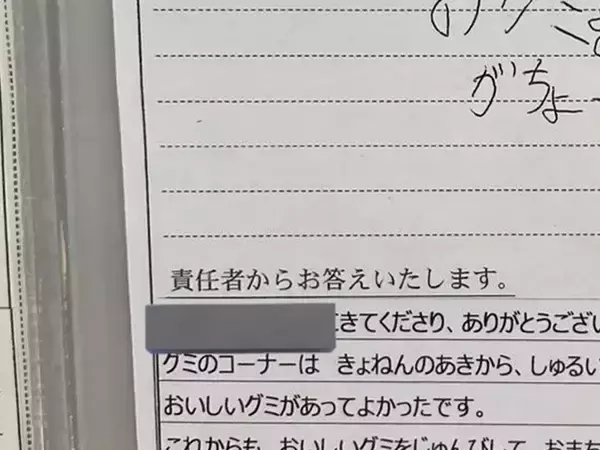 がちょ
責任者からお答えいたします。
きてくださり、ありがとうござい
グミのコーナーは きょねんのあきから、しゅるい
おいしいグミがあってよかったです。
これからも、おいしいグミをじゅんびして、おまち